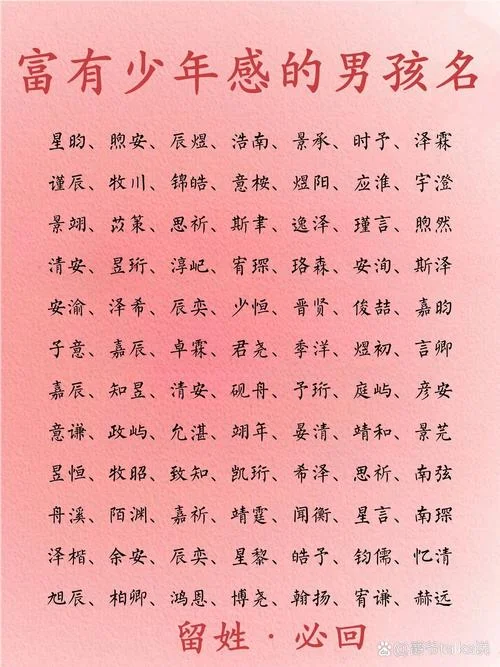 富有少年感的男孩名
星昀、煦安、辰煜、浩南、景承、时予、泽霖
谨辰、牧川、锦皓、意桉、煜阳、应淮、宇澄
景翊、苡策、思祈、斯聿、逸泽、瑾言、煦然
清安、昱珩、淳屺、宥琛、珞森、安洵、斯泽
安渝、泽希、辰奕、少恒、晋贤、俊喆、嘉昀
子意、嘉辰、卓霖、君尧、季洋、煜初、言卿
嘉辰、知昱、清安、砚舟、予珩、庭屿、彦安
意谦、政屿、允湛、翊年、晏清、靖和、景芫
昱恒、牧昭、致知、凯珩、希泽、思祈、南弦
舟溪、陌渊、嘉祈、靖霆、闻衡、星言、南琛
泽楷、余安、辰奕、星黎、皓予、钧儒、忆清
旭辰、柏卿、鸿恩、博尧、翰扬、宥谦、赫远
留姓·必回